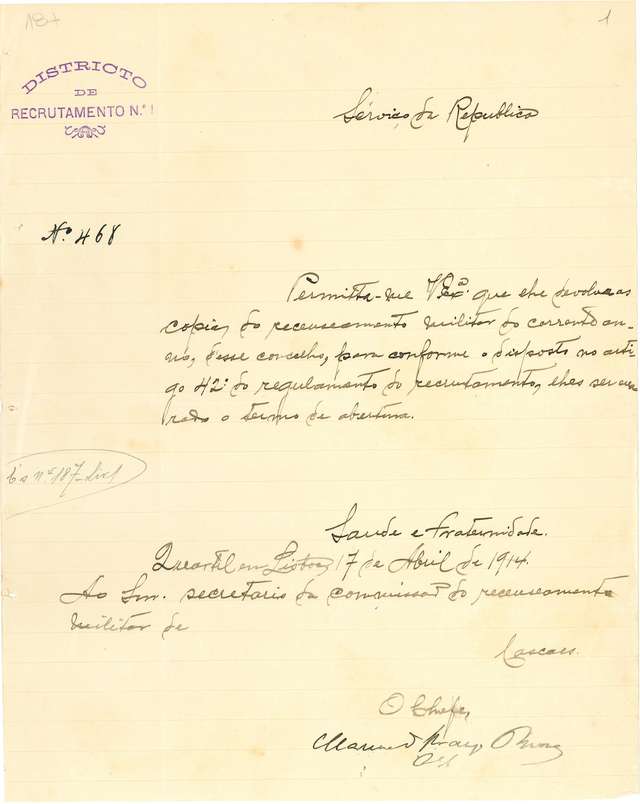 187
1
DISTRICTO
DE
RECRUTAMENTO N.º 1
Serviço da Republica
Nº. 468
Permitta-me V Exª. que lhe devolva as
copias do recenseamento militar do corrente an-
no, d'esse concelho, para conforme o disposto no arti-
go 42º do regulamento do recrutamento, lhes ser
rado o termo de abertura.
nº 187
Saude e Fraternidade.
Quartel em Lisboa, 17 de Abril de 1914.
Ao Snr. secretario da commissão do recenseamento
militar de
Cascaes.
O Chefe,
Manuel